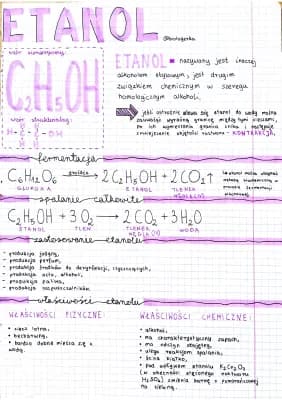 ETANOL
@biologerka
wzór sumaryczny:
C2H5OH
wzór strukturalny:
H H
H-C-C-OH
H H
ETANOL - nazywany jest inaczej
alkoholem etylowym, jest drugim
związkiem chemicznym w szeregu
homologicznym alkoholi.
jeśli ostrożnie wlewa się etanol do wody można
zauważyć wyraźną granicę między tymi cieczami,
po ich wymieszaniu granica znika i następuje
zmniejszenie objętości roztworu - KONTRAKCJA.
fermentacja
C6H12O6 drożdże → 2C2H5OH + 2CO2↑
GLUKOZA ETANOL TLENEK WĘGLA (IV)
spalanie całkowite
C2H5OH + 3O2 → 2CO2 + 3H2O
ETANOL TLEN TLENEK WĘGLA (IV) WODA
zastosowanie etanolu
- produkcja
- produkcja perfum,
- produkcja środków do dezynfekcji, czyszczących,
- produkcja octu, alkoholi,
- produkcja paliwa,
- produkcja rozpuszczalników.
właściwości etanolu
WŁAŚCIWOŚCI FIZYCZNE:
- ciecz lotna,
- bezbarwny,
- bardzo dobrze miesza się z
wodą.
WŁAŚCIWOŚCI CHEMICZNE:
- alkohol,
- ma charakterystyczny zapach,
- ma odczyn obojętny,
- ulega reakcjom spalania,
- ścina białko,
- pod wpływem etanolu K2Cr2O7
(w obecności stężonego roztworu
H2SO4) zmienia barwę z pomarańczowej
na zieloną.